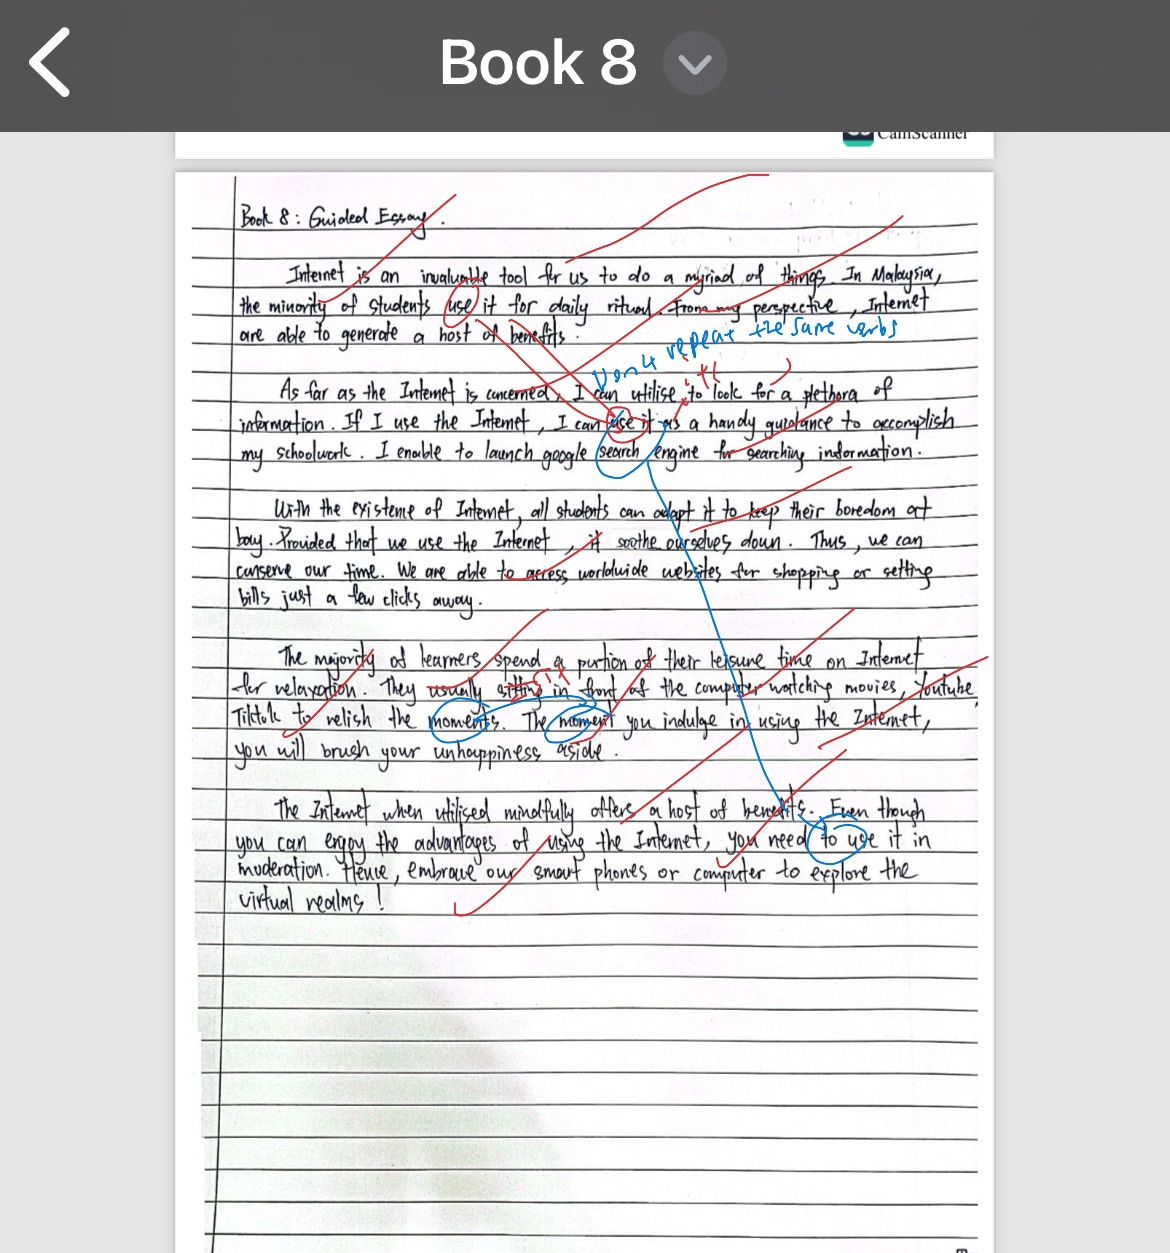 Book 8
CamScanner
Book 8 : Guided Essay .
Internet is an invaluable tool for us to do a myriad of things. In Malaysia,
the minority of students use it for daily ritual. From my perspective, Internet
are able to generate a host of benefits .
Don't repeat the same verbs
As far as the Internet is concerned, I can utilise to look for a plethora of
information. If I use the Internet, I can use it as a handy guidance to accomplish
my schoolwork. I enable to launch google search engine for searching information.
With the existence of Internet, all students can adapt it to keep their boredom at
bay. Provided that we use the Internet, it soothe ourselves down. Thus, we can
conserve our time. We are able to access worldwide websites for shopping or setting
bills just a few clicks away.
The majority of learners spend a portion of their leisure time on Internet
sit
for relaxation. They usually sitting in front of the computer watching movies, Youtube
Tiktok to relish the moments. The moment you indulge in using the Internet,
you will brush your unhappiness aside .
The Internet when utilised mindfully offers a host of benefits. Even though
you can enjoy the advantages of using the Internet, you need to use it in
moderation. Hence, embrace our smart phones or computer to explore the
virtual realms !